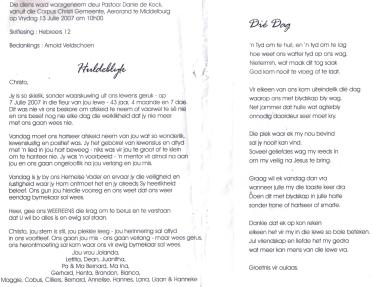 Die diens word waargeneem deur Pastoor Danie de Kock,
vanuit die Corpus Christi Gemeente, Aerorand te Middelburg
op Vrydag 13 Julie 2007 om 10h00
Skriflesing : Hebreërs 12
Bedankings : Arnold Veldschoen
Huldeblyk
Christo,
Jy is so skielik, sonder waarskuwing uit ons lewens geruk - op
7 Julie 2007 in die fleur van jou lewe - 43 jaar, 4 maande en 7 dae.
Dit was nie vir ons beskore om afskeid te neem of vaarwel te sê nie
en ons besef nog nie elke dag die werklikheid dat jy nie meer
met ons gaan wees nie.
Vandag moet ons hartseer afskeid neem van jou wat so wonderlik,
lewenslustig en positief was. Jy het geborrel van lewenslus en altyd
met 'n lied in jou hart beweeg - niks was vir jou te groot of te klein
om te hanteer nie. Jy was 'n voorbeeld - 'n mentor vir almal na aan
jou en ons gaan ongelooflik na jou verlang en jou mis.
Vandag is jy by ons Hemelse Vader en ervaar jy die veiligheid en
rustigheid waar jy Hom ontmoet het en jy alreeds Sy heerlikheid
beleef. Ons gun jou hierdie voorreg en ons weet dat ons weer
eendag bymekaar sal wees.
Heer, gee ons WEEREENS die krag om te berus en te verstaan
dat U wil bo alles is en ewig sal staan.
Christo, jou stem is stil, jou plekkie leeg - jou herinnering sal altyd
in ons voortleef. Ons gaan jou mis - ons gaan verlang - maar wees gerus,
ons herontmoeting sal kom waar ons vir ewig bymekaar sal wees.
Jou vrou Jolanda,
Letitia, Dean, Juanitha,
Pa & Ma Bernard, Ma Ina,
Gerhard, Henta, Brandon, Bianca,
Maggie, Cobus, Cilliers, Bernard, Annelise, Hannes, Lana, Ilaan & Hanneke
Dié Dag
'n Tyd om te huil, en 'n tyd om te lag
hoe weet ons watter tyd op ons wag.
Nietemin, wat maak dit tog saak
God kom nooit te vroeg of te laat.
Vir elkeen van ons kom uiteindelik dié dag
waarop ons met blydskap bly wag.
Net jammer dat wat hulle agterbly
onnodig daardeur seer moet kry.
Die plek waar ek my nou bevind
sal jy nooit kan vind.
Soveel geliefdes wag my reeds in
om my veilig na Jesus te bring.
Graag wil ek vandag dan vra
wanneer julle my die laaste keer dra
Doen dit met blydskap in julle harte
sonder trane of hartseer of smarte.
Dankie dat ek op kon reken
elkeen het vir my in die lewe so baie beteken.
Jul vriendskap en liefde het my gedra
wat binne kort ken nie meer vra.
Groetnis vir oulaas.